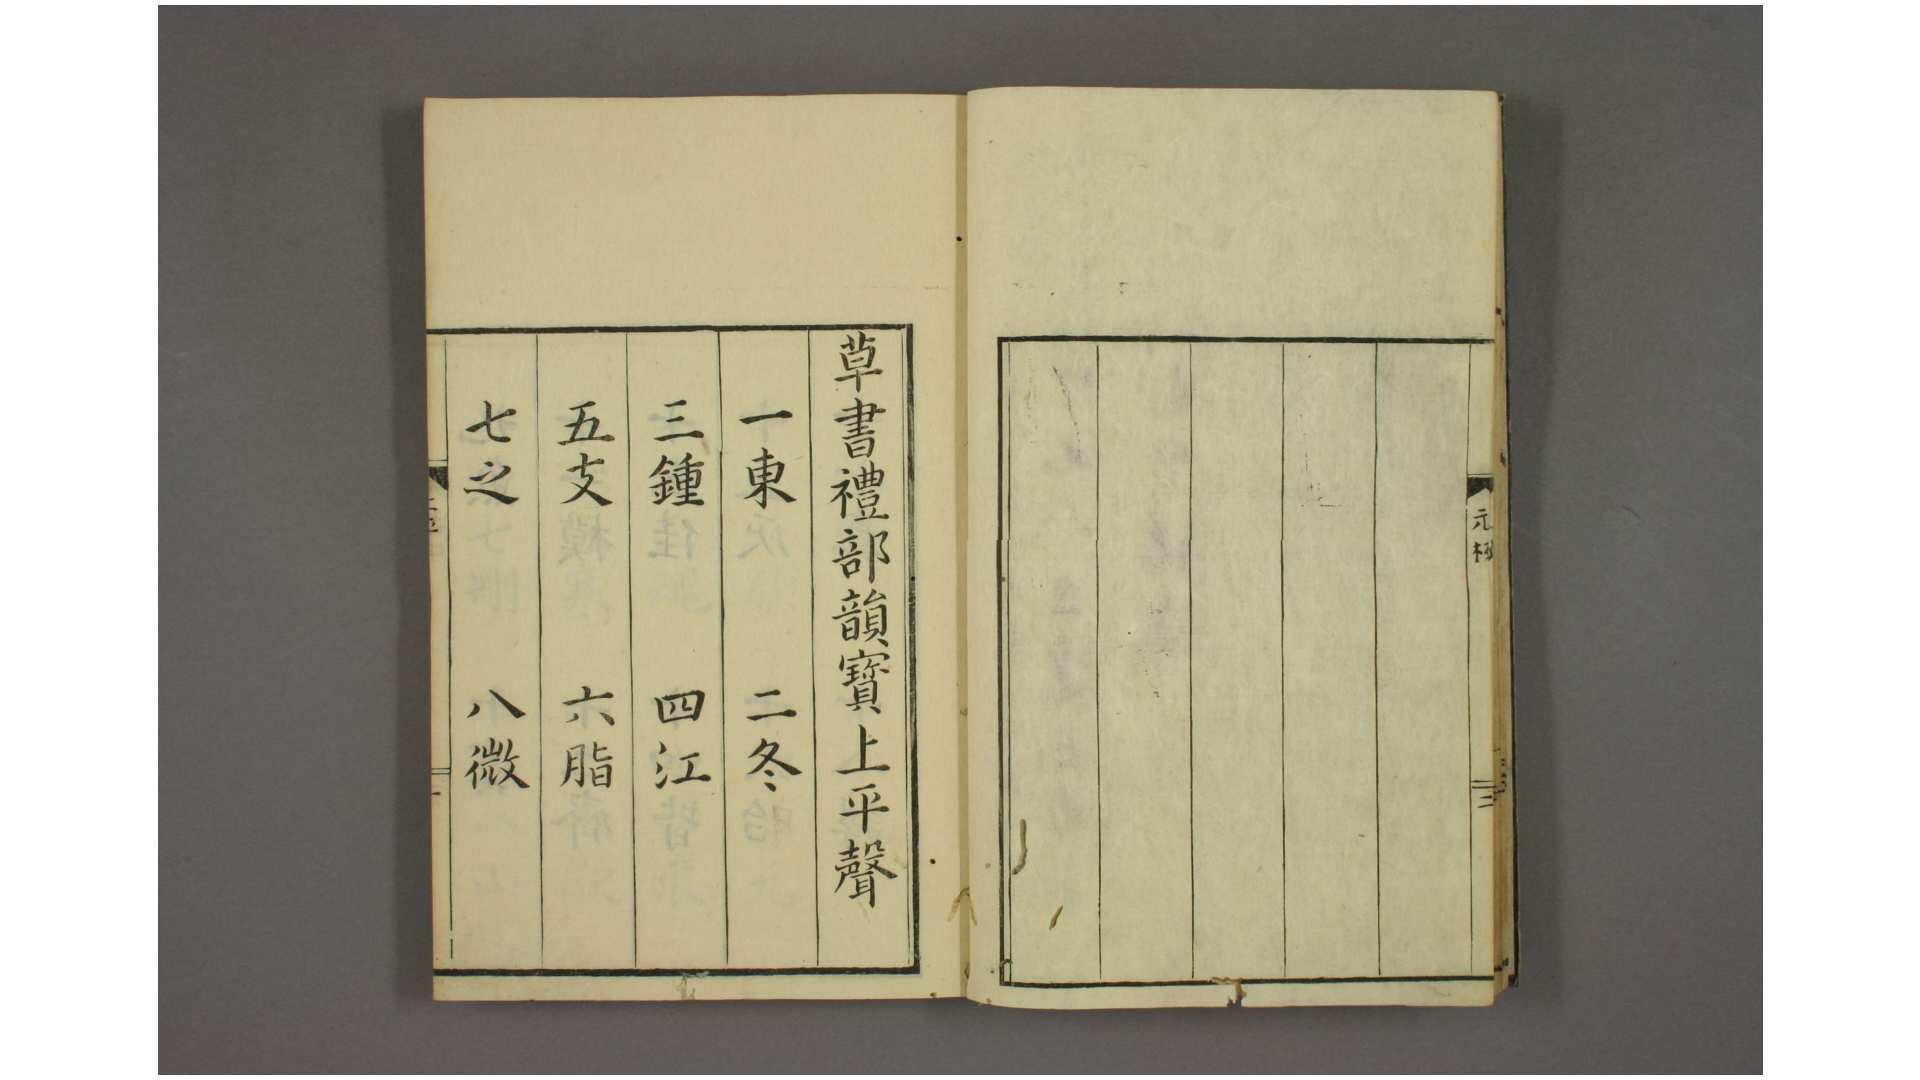 元極
二
草書禮部韻寳上平聲
一東　二冬
三鍾　四江
五支　六脂
七之　八微